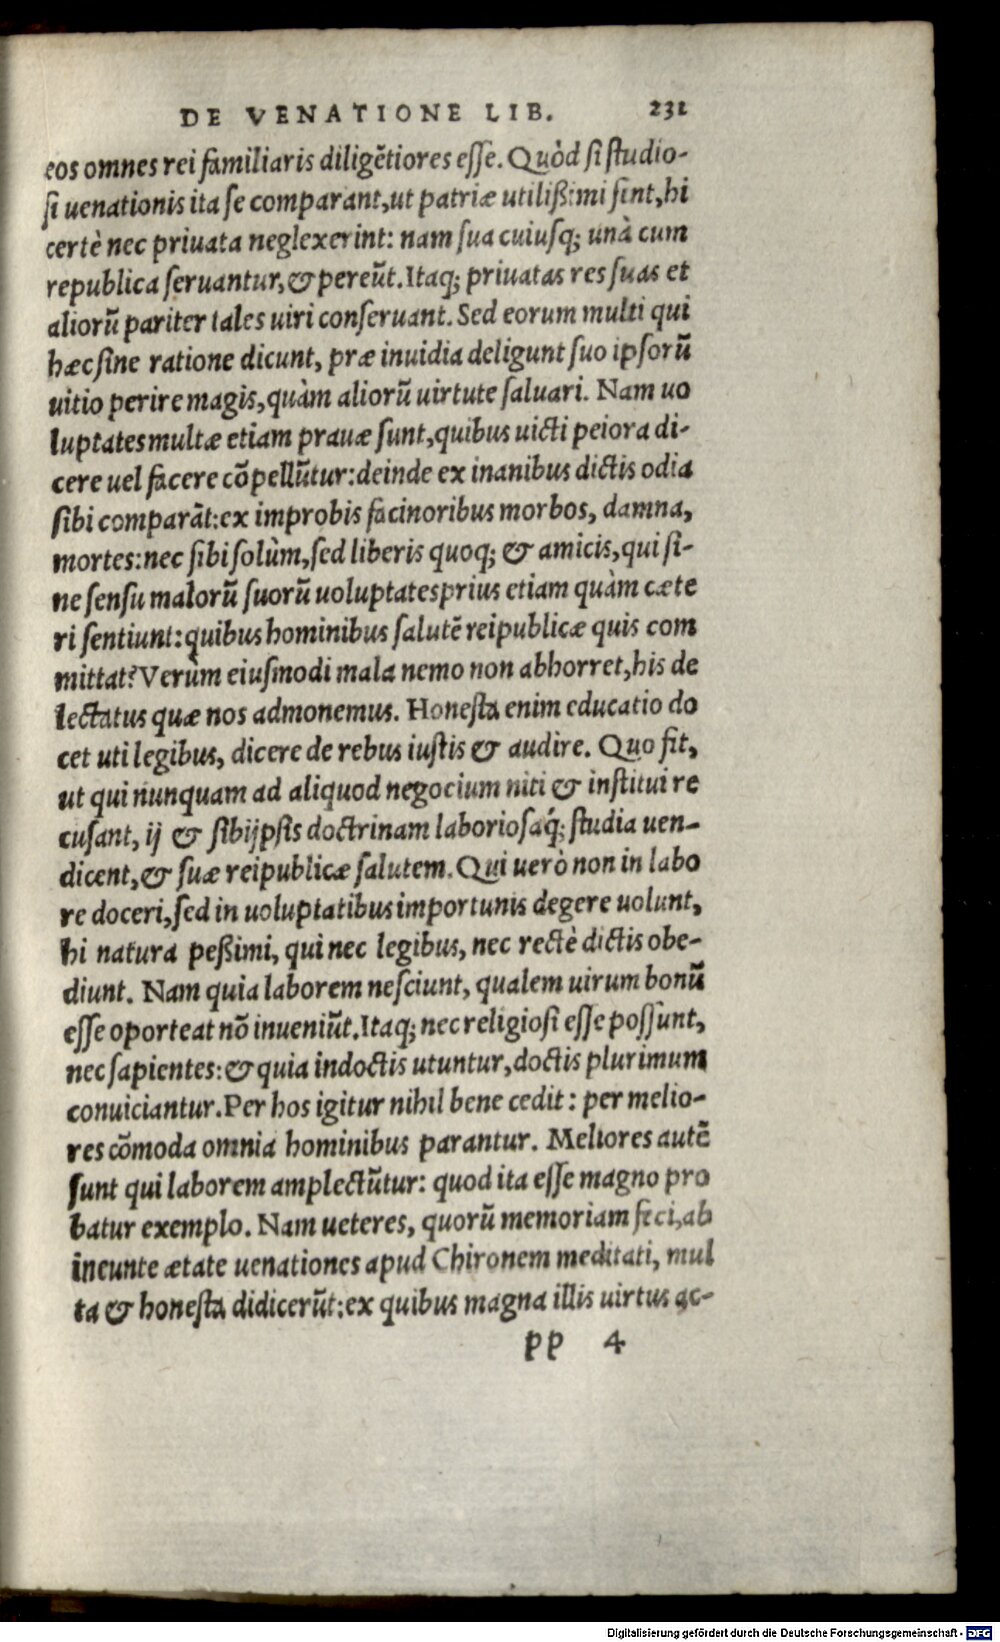 DE VENATIONE LIB. 231
eos omnes rei familiaris diligẽtiores esse. Quòd si studio-
si uenationis ita se comparant,ut patriæ utilißimi sint,hi
certè nec priuata neglexerint: nam sua cuiusq; unà cum
republica seruantur,& pereũt.Itaq; priuatas res suas et
aliorũ pariter tales uiri conseruant. Sed eorum multi qui
hæc sine ratione dicunt, præ inuidia deligunt suo ipsorũ
uitio perire magis,quàm aliorũ uirtute saluari. Nam uo
luptates multæ etiam prauæ sunt,quibus uicti peiora di-
cere uel facere cõpellũtur:deinde ex inanibus dictis odia
sibi comparãt:ex improbis facinoribus morbos, damna,
mortes:nec sibi solùm,sed liberis quoq; & amicis,qui si-
ne sensu malorũ suorũ uoluptates prius etiam quàm cæte
ri sentiunt:quibus hominibus salutẽ reipublicæ quis com
mittat?Verùm eiusmodi mala nemo non abhorret,his de
lectatus quæ nos admonemus. Honesta enim educatio do
cet uti legibus, dicere de rebus iustis & audire. Quo fit,
ut qui nunquam ad aliquod negocium niti & institui re
cusant, ij & sibijpsis doctrinam laboriosaq́; studia uen-
dicent,& suæ reipublicæ salutem. Qui uerò non in labo
re doceri,sed in uoluptatibus importunis degere uolunt,
hi natura peßimi, qui nec legibus, nec rectè dictis obe-
diunt. Nam quia laborem nesciunt, qualem uirum bonũ
esse oporteat nõ inueniũt.Itaq; nec religiosi esse possunt,
nec sapientes:& quia indoctis utuntur,doctis plurimum
conuiciantur.Per hos igitur nihil bene cedit: per melio-
res cõmoda omnia hominibus parantur. Meliores autẽ
sunt qui laborem amplectũtur: quod ita esse magno pro
batur exemplo. Nam ueteres, quorũ memoriam feci,ab
ineunte ætate uenationes apud Chironem meditati, mul
ta & honesta didicerũt:ex quibus magna illis uirtus ac-
pp 4
Digitalisierung gefördert durch die Deutsche Forschungsgemeinschaft - DFG